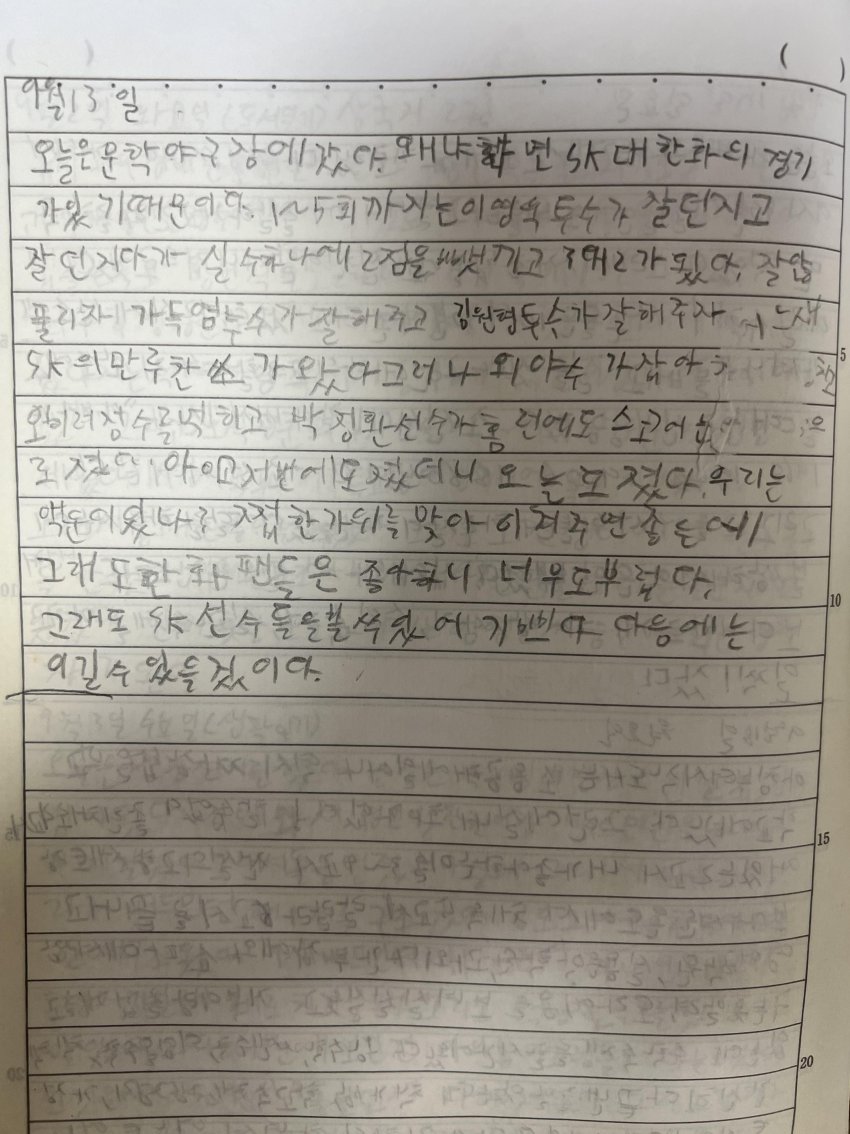 9월13일
오늘은 문학 야구장에 갔다. 왜냐하면 SK 대 한화의 경기
가있 기때문이다. 1~5회까지는이영욱 투수가 잘던지고
잘던지다가 실수하나에 2점을 빼앗기고 3대2가 됬다. 잘않
풀리자 가득염투수가 잘해주고 김원형투수가잘해주자 어느새
SK의만루찬쓰가왔다그러나 외야수 가잡아
박정환선수가홈런에도 스코어
로 졌다. 아이고저번에도졌더니 오늘도 졌다. 우리는
악운이있나? 직접 한가위를 맞아 이겨주면 좋은데
그래도한화 팬들은 좋아하니 너무도부럽다.
그래도 SK 선수들을볼수있어 기쁘다 다음에는
이길수있을것이다.
5
10
15
20